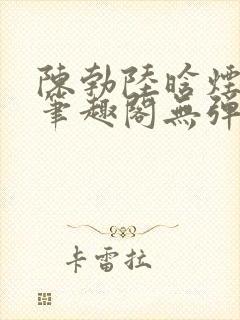 陳勃陸晗煙
筆趣閣無彈
卡雷拉